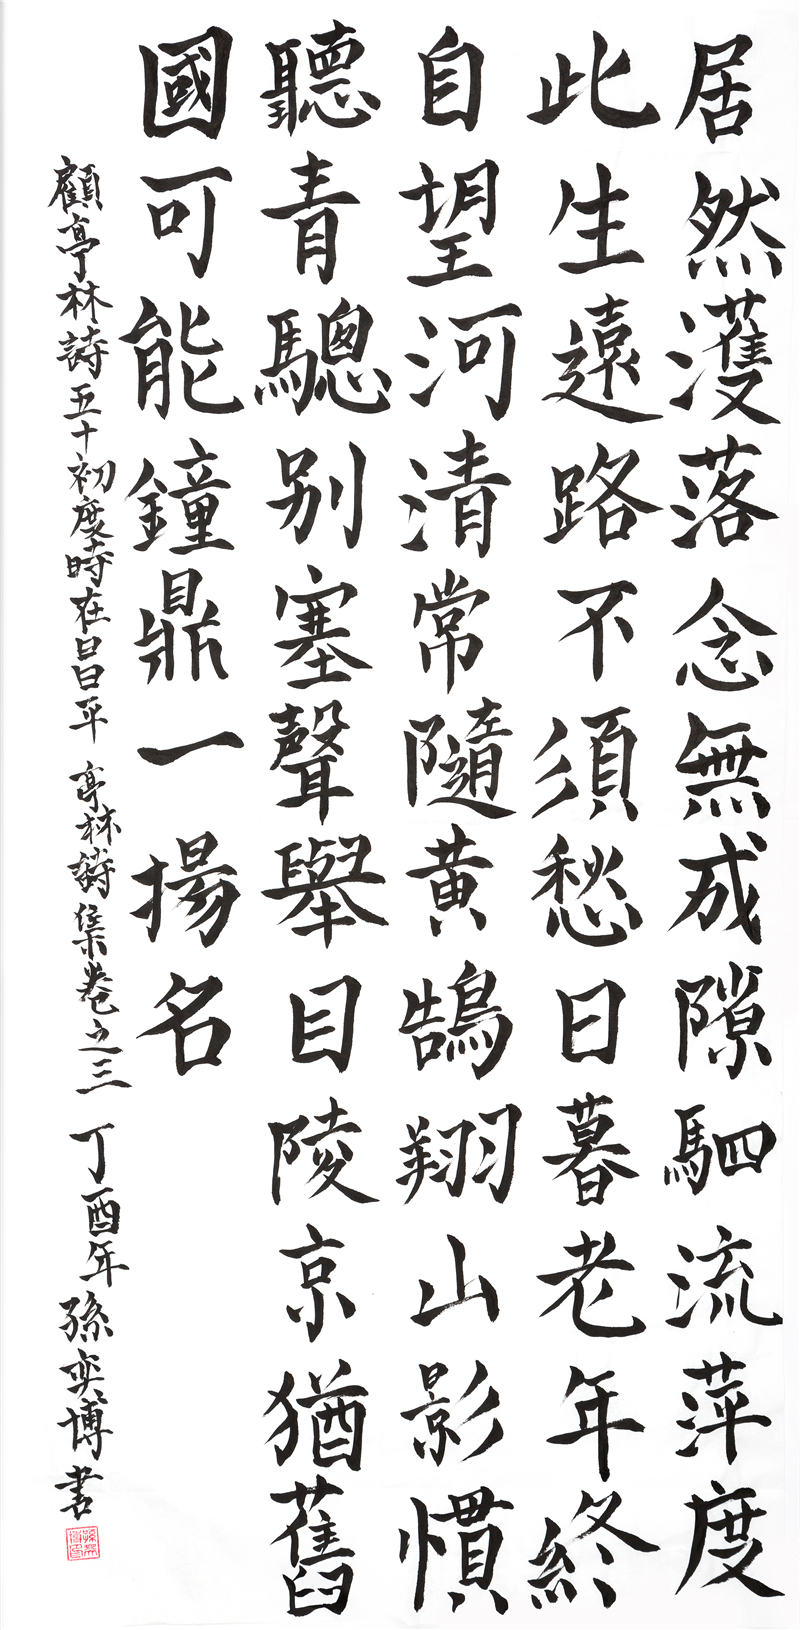 居然濩落念無成隙駟流萍度
此生遠路不須愁日暮老年終
自望河清常隨黃鵠翔山影慣
聽青驄别塞聲舉目陵京猶舊
國可能鐘鼎一揚名
顧亭林詩五十初度時在昌平 亭林詩集卷之三 丁酉年 孫奕博書